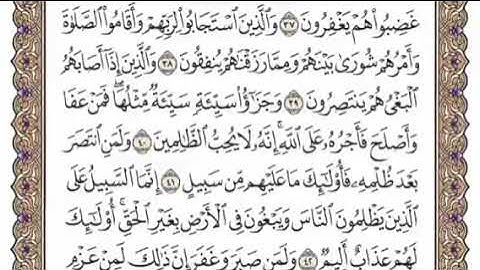 غَضِبُوا۟ هُمْ يَغْفِرُونَ ٣٧ وَٱلَّذِينَ ٱسْتَجَابُوا۟ لِرَبِّهِمْ وَأَقَامُوا۟ ٱلصَّلَوٰةَ
وَأَمْرُهُمْ شُورَىٰ بَيْنَهُمْ وَمِمَّا رَزَقْنَـٰهُمْ يُنفِقُونَ ٣٨ وَٱلَّذِينَ إِذَآ أَصَابَهُمُ
ٱلْبَغْىُ هُمْ يَنتَصِرُونَ ٣٩ وَجَزَٰٓؤُا۟ سَيِّئَةٍ سَيِّئَةٌ مِّثْلُهَا ۖ فَمَنْ عَفَا
وَأَصْلَحَ فَأَجْرُهُۥ عَلَى ٱللَّهِ ۚ إِنَّهُۥ لَا يُحِبُّ ٱلظَّـٰلِمِينَ ٤٠ وَلَمَنِ ٱنتَصَرَ
بَعْدَ ظُلْمِهِۦ فَأُو۟لَـٰٓئِكَ مَا عَلَيْهِم مِّن سَبِيلٍ ٤١ إِنَّمَا ٱلسَّبِيلُ عَلَى
ٱلَّذِينَ يَظْلِمُونَ ٱلنَّاسَ وَيَبْغُونَ فِى ٱلْأَرْضِ بِغَيْرِ ٱلْحَقِّ ۚ أُو۟لَـٰٓئِكَ
لَهُمْ عَذَابٌ أَلِيمٌ ٤٢ وَلَمَن صَبَرَ وَغَفَرَ إِنَّ ذَٰلِكَ لَمِنْ عَزْمِ